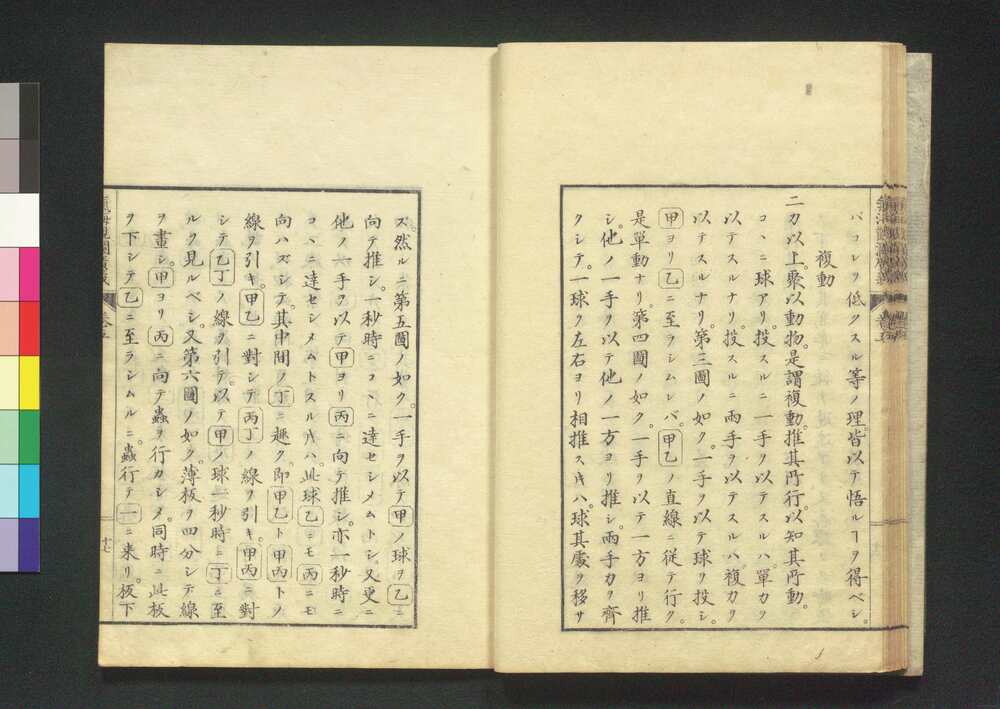 バコレヲ低クスル等ノ理。皆以テ悟ルヿヲ得ベシ。
複動
二力以上。聚以動物。是謂複動。推其所行。以知其所動。
コヽニ球アリ。投スルニ一手ヲ以テスルハ。單力ヲ
以テスルナリ。投スルニ兩手ヲ以テスルハ。複力ヲ
以テスルナリ。第三圖ノ如ク。一手ヲ以テ球ヲ投シ。
甲ヨリ乙ニ至ラシムレバ。甲乙ノ直線ニ從テ行ク。
是單動ナリ。第四圖ノ如ク。一手ヲ以テ一方ヨリ推
シ。他ノ一手ヲ以テ他ノ一方ヨリ推シ。兩手力ヲ齊
クシテ。一球ヲ左右ヨリ相推ス𪜈ハ。球其處ヲ移サ
ズ。然ルニ第五圖ノ如ク。一手ヲ以テ甲ノ球ヲ乙ニ
向テ推シ。一秒時ニコヽニ達セシメムトシ。又更ニ
他ノ一手ヲ以テ甲ヨリ丙ニ向テ推シ。亦一秒時ニ
コヽニ達セシメムトスル𪜈ハ。此球乙ニモ丙ニモ
向ハズシテ。其中間ノ丁ニ趣ク。即甲乙ト甲丙トノ
線ヲ引キ。甲乙ニ對シテ丙丁ノ線ヲ引キ。甲丙ニ對
シテ乙丁ノ線ヲ引テ。以テ甲ノ球一秒時ニ丁ニ至
ルヲ見ルベシ。又第六圖ノ如ク。薄板ヲ四分シテ線
ヲ畫シ。甲ヨリ丙ニ向テ蟲ヲ行カシメ。同時ニ此板
ヲ下シテ乙ニ至ラシムルニ。蟲行テ一ニ来リ。板下
十七